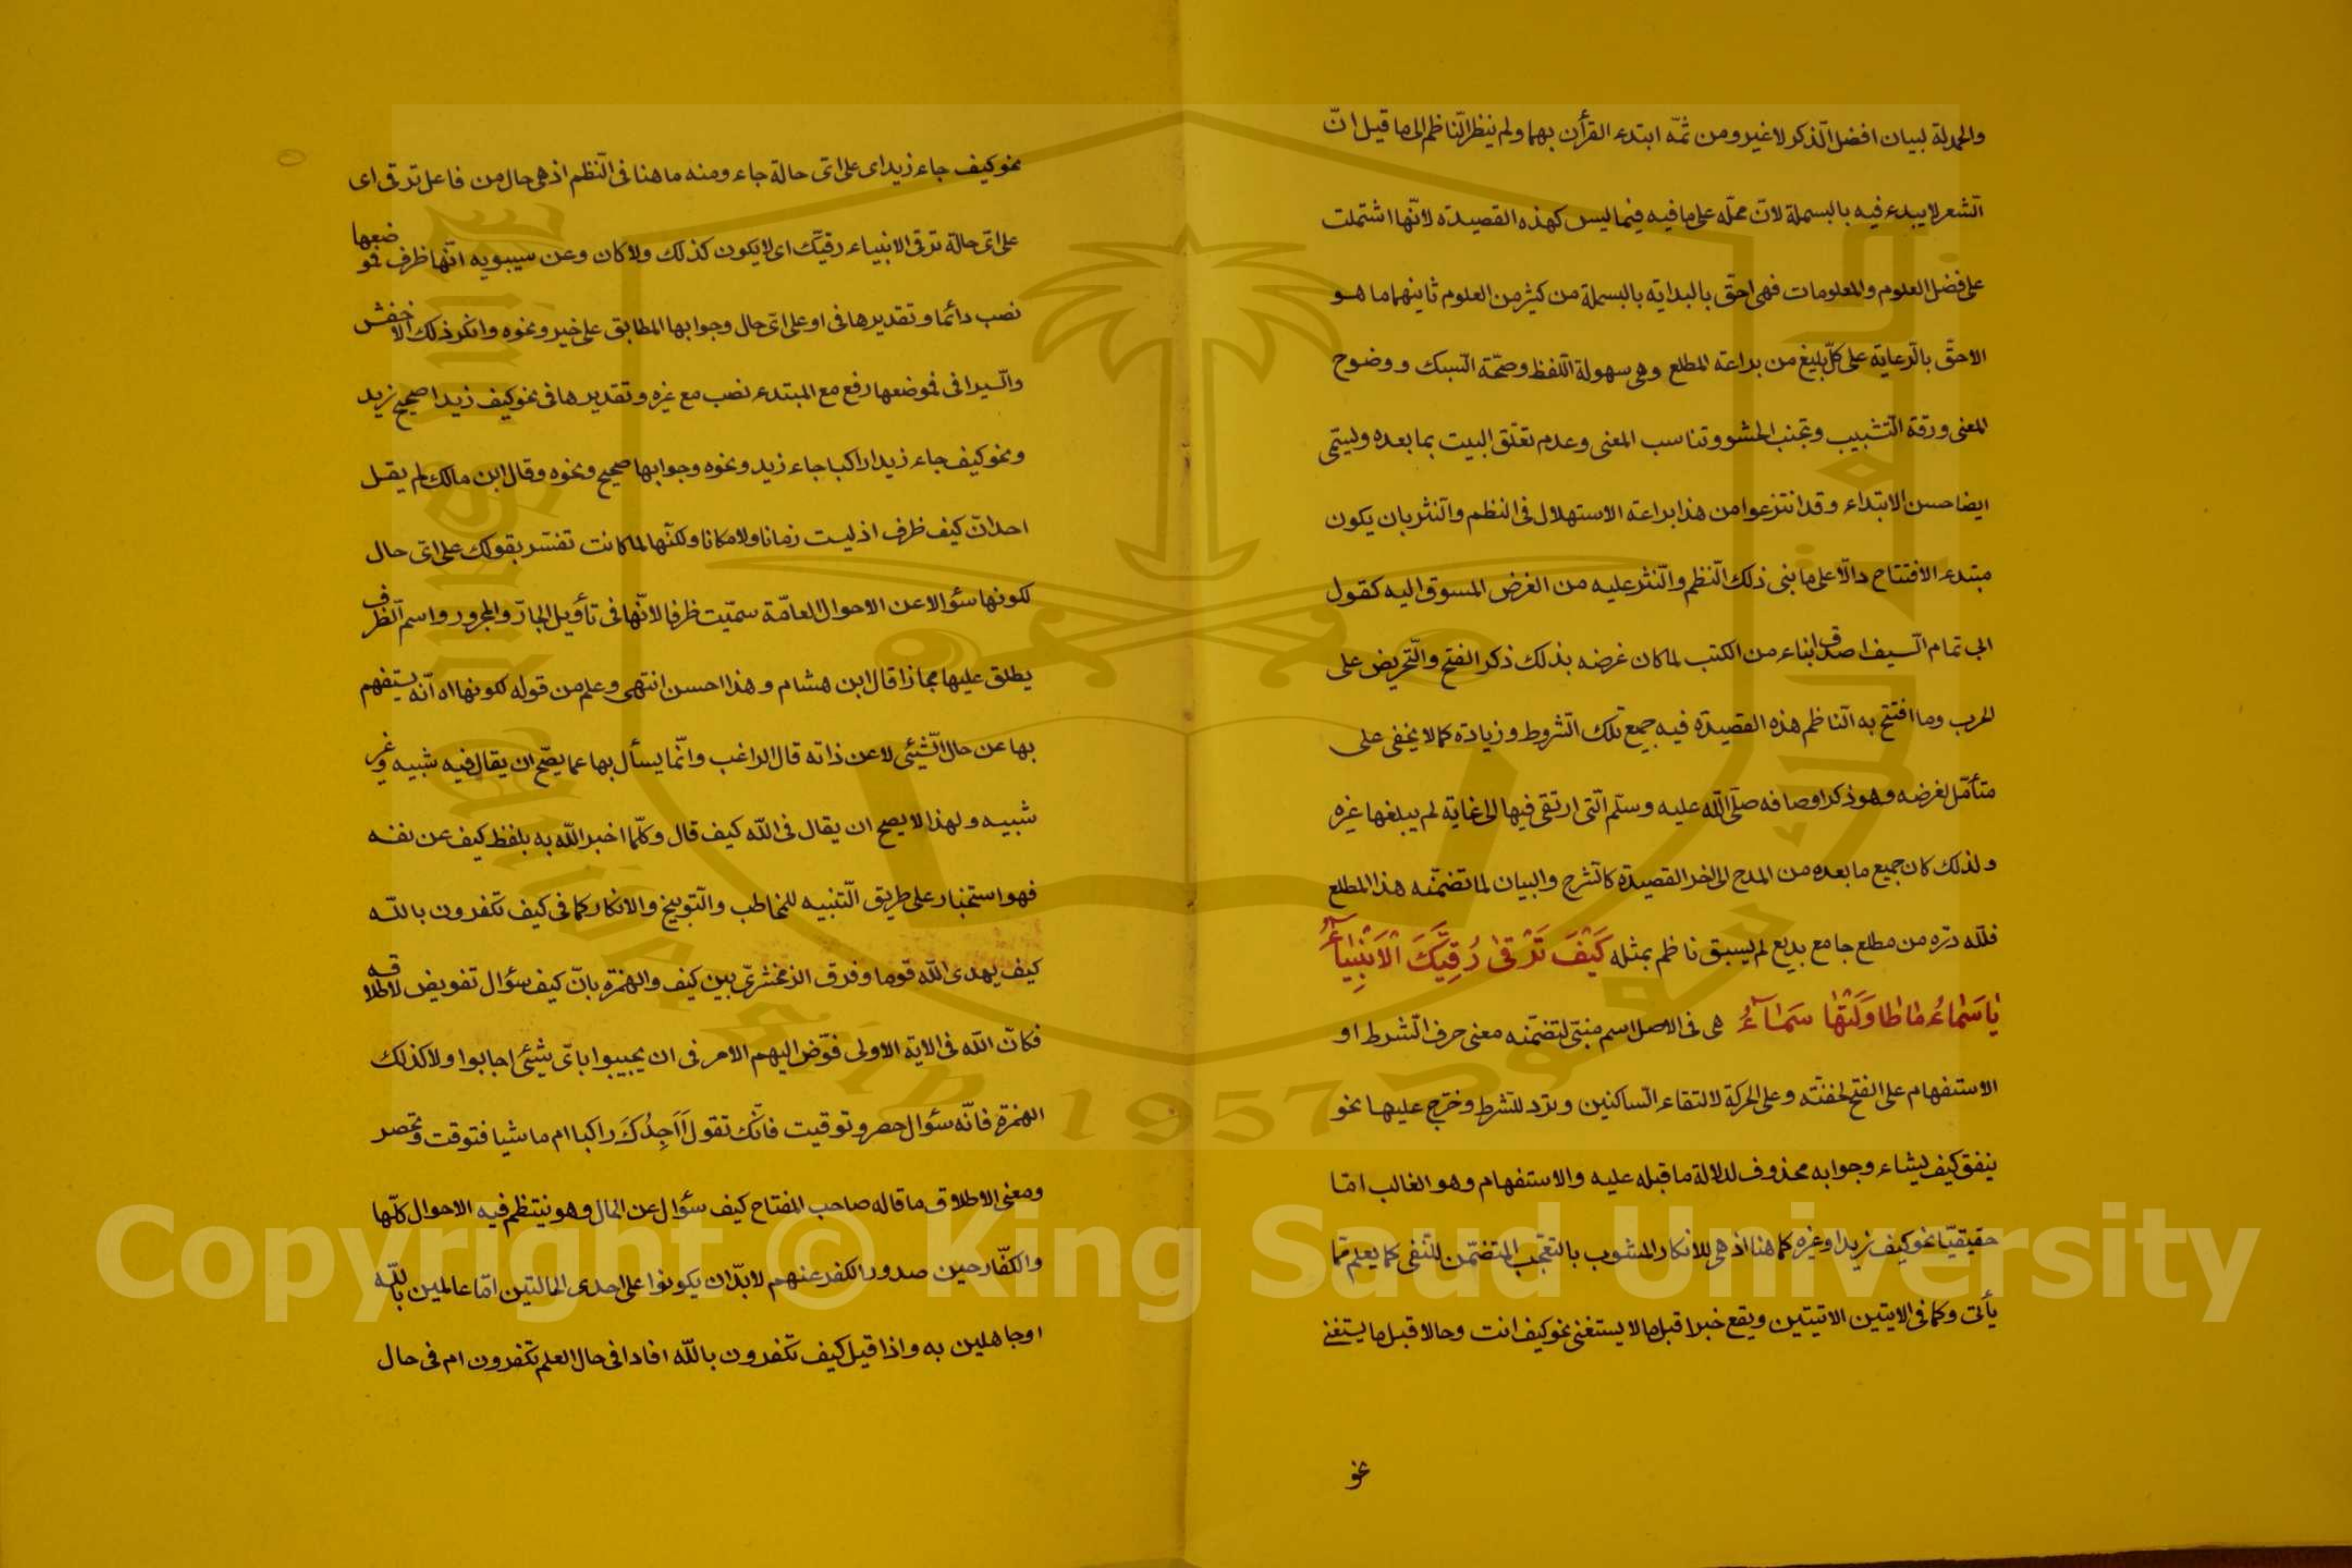 والحمدلة لبيان افضل الذكر لا غير ومن ثمّه ابتدء القرأن بهما ولم ينظر النّاظم الى ما قيل انّ
الشعر لا يبدء فيه بالبسملة لانّ محلّه على ما فيه فيما ليس كهذه القصيدة لانّها اشتملت
على فضل العلوم والمعلومات فهى احقّ بالبداية بالبسملة من كثير من العلوم ثانيهما ما هو
الاحقّ بالرّعاية على كلّ بليغ من براعة المطلع وهى سهولة اللّفظ وصحّة السّبك ووضوح
المعنى ورقة التّشبيب وتجنب الحشو وتناسب المعنى وعدم تعلّق البيت بما بعده ويسمّى
ايضا حسن الابتداء وقد انتزعوا من هذا براعة الاستهلال فى النظم والنّثر بان يكون
مبتدء الافتتاح دالّا على ما بنى ذلك النّظم والنّثر عليه من الغرض المسوق اليه كقول
ابى تمام السّيف اصدق انباء من الكتب لما كان غرضه بذلك ذكر الفتح والتّحريض على
الحرب وما افتتح به النّاظم هذه القصيدة فيه جميع تلك الشّروط وزيادة كما لا يخفى على
متأمّل لغرضه وهو ذكر اوصافه صلّى اللّه عليه وسلّم الّتى ارتقى فيها الى غاية لم يبلغها غيره
ولذلك كان جميع ما بعده من المدح الى اخر القصيدة كالشّرح والبيان لما تضمّنه هذا المطلع
فللّه درّه من مطلع جامع بديع لم يسبق ناظم بمثله كَيْفَ تَرْقىٰ رُقِيَّكَ الْاَنْبِيٰاۤءُ
يٰا سَمٰاۤءُ مٰا طٰاوَلَتْهٰا سَمٰاۤءُ هى فى الاصل اسم مبنىّ لتضمّنه معنى حرف الشّرط او
الاستفهام على الفتح لخفّته وعلى الحركة لالتقاء السّاكنين وترد للشّرط وخرّج عليها نحو
ينفق كيف يشاء وجوابه محذوف لدلالة ما قبله عليه والاستفهام وهو الغالب امّا
حقيقيّا نحو كيف زيد او غيره كما هنا اذ هى للانكار المشوب بالتعجّب المتضمّن للنّفى كما يعلم ممّا
يأتى وكما فى الايتين الاتيتين ويقع خبرا قبل ما لا يستغنى نحو كيف انت وحالا قبل ما يستغنى
نحو
نحو كيف جاء زيد اى على اىّ حالة جاء ومنه ما هنا فى النّظم اذ هى حال من فاعل ترقى اى
على اىّ حالة ترقى الانبياء رقيّك اى لا يكون كذلك ولا كان وعن سيبويه انّها ظرف فموضعها
نصب دائما وتقديرها فى او على اىّ حال وجوابها المطابق على خير ونحوه وانكر ذلك الاخفش
والسّيرافى فموضعها رفع مع المبتدء نصب مع غيره وتقديرها فى نحو كيف زيد اصحيح زيد
ونحو كيف جاء زيد اراكبا جاء زيد ونحوه وجوابها صحيح ونحوه وقال ابن مالك لم يقل
احد انّ كيف ظرف اذ ليست زمانا ولا مكانا ولكنّها لما كانت تفسّر بقولك على اىّ حال
لكونها سئوالا عن الاحوال العامّة سمّيت ظرفا لانّها فى تأويل الجارّ والمجرور واسم الظرف
يطلق عليها مجازا قال ابن هشام وهذا احسن انتهى وعلم من قوله لكونها اه انّه يستفهم
بها عن حال الشّيئى لا عن ذاته قال الراغب وانّما يسأل بها عما يصّح ان يقال فيه شبيه وغير
شبيه ولهذا لا يصح ان يقال فى اللّه كيف قال وكلّما اخبر اللّه به بلفظ كيف عن نفسه
فهو استخبار على طريق التّنبيه للمخاطب والتّوبيخ والانكار كما فى كيف تكفرون باللّه
كيف يهدى اللّه قوما وفرق الزمخشرىّ بين كيف والهمزة بانّ كيف سؤال تفويض لاطلاقه
فكانّ اللّه فى الاية الاولى فوّض اليهم الامر فى ان يجيبوا باىّ شيئى اجابوا ولا كذلك
الهمزة فانّه سئوال حصر وتوقيت فانّك تقول أَاَجِدُكَ راكبا ام ماشيا فتوقت وتحصر
ومعنى الاطلاق ما قاله صاحب المفتاح كيف سئوال عن الحال وهو ينتظم فيه الاحوال كلّها
والكفّار حين صدور الكفر عنهم لا بدّ ان يكونوا على احدى الحالتين امّا عالمين باللّه
او جاهلين به واذا قيل كيف تكفرون باللّه افاد افى حال العلم تكفرون ام فى حال
Copyright © King Saud University
1957